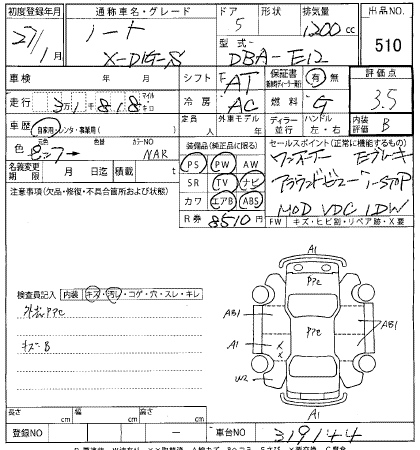 初度登録年月 通称車名・グレード ドア 形状 排気量 出品No.
27/1月 ノート 5 1200cc 510
X-DIG-S 型式 DBA-E12
車検 年 月 シフト F AT 保証書 有 無 評価点
走行 3万1千818 マイル キロ 冷房 AC 燃料 G 3.5
車歴 自家用・レンタ・事業用( ) 定員 人 外車モデル 年 ディーラー 並行 ハンドル 左・右 内装評価 B
色 元色 色替 カラーNO NAR
名義変更期限 月 日迄 積載 t
装備品(純正品に限る) セールスポイント(正常に機能するもの)
PS PW AW ワンオーナー Eブレーキ
SR TV ナビ アラウンドビュー I-STOP
カワ エアB ABS MOD VDC IDW
R券 8510円 FW キズ・ヒビ割・リペア跡・X要
注意事項(欠品・修復・不具合箇所および状態)
検査員記入 内装 キズ・汚れ・コゲ・穴・スレ・キレ
キズ B
A1
PPC
AB1 PPC AB1
A1
W2
A1
長さ cm 幅 cm 高さ cm
登録NO ー 車台NO 319144